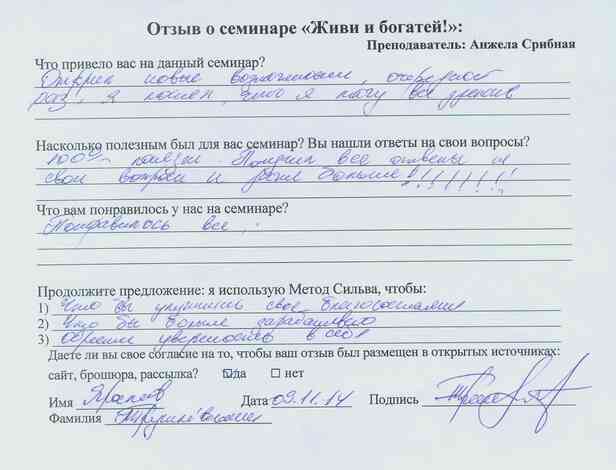 Отзыв о семинаре «Живи и богатей!»:
Преподаватель: Анжела Срибная
Что привело вас на данный семинар?
Открыл новые возможности, очередной
раз, я понял, что я могу все
Насколько полезным был для вас семинар? Вы нашли ответы на свои вопросы?
100% полезн. Получил все ответы на
свои вопросы и даже больше!!!!!!!!!
Что вам понравилось у нас на семинаре?
Понравилось все.
Продолжите предложение: я использую Метод Сильва, чтобы:
1) Что бы улучшить свое благосостояние
2) Что бы больше
3) уверенность в себе
Даете ли вы свое согласие на то, чтобы ваш отзыв был размещен в открытых источниках:
сайт, брошюра, рассылка? ☑да ☐ нет
Имя Дата 09.11.14 Подпись
Фамилия